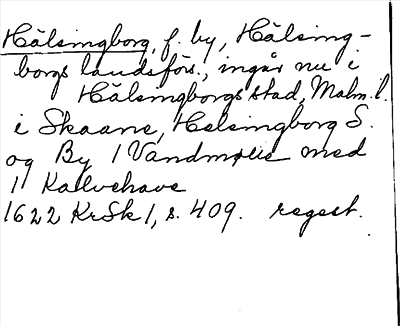 Hälsingborg, f. by, Hälsing-
borgs landsförs., ingår nu i
Hälsingborgs stad, Malm. l.
i Skaane, Helsingborg S.
og By 1 Vandmølle med
1 Kalvehave
1622 KrSk 1, s. 409. regest.